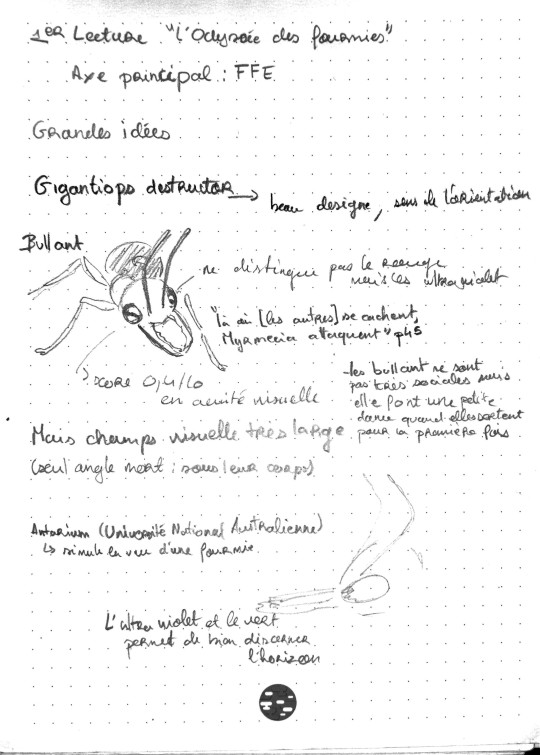 1er Lecture "L'Odyssée des fourmies"
Axe principal : FFE
Grandes idées
Gigantiops destructor → beau designe, sens de l'orientation
Bullant
ne distingue pas le rouge
mais les ultraviolet
"là où [les autres] se cachent,
Myrmecia attaquent" p45
→ score 0,4/10
en acuité visuelle
- les bullant ne sont
pas très sociales mais
elle font une petite
dance quand elles sortent
pour la première fois
Mais champs visuelle très large
(seul angle mort : sous leur corps)
Antarium (Université National Australienne)
↳ simule la vue d'une fourmie
L'ultra violet et le vert
permet de bien discerner
l'horizon